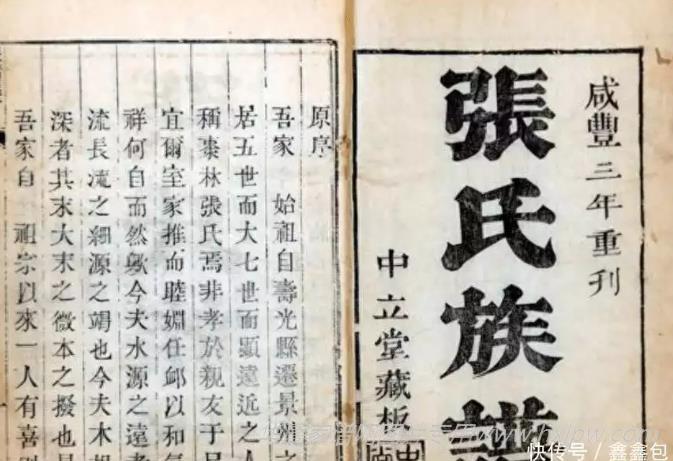 咸豐三年重刊
張氏族譜
中立堂藏板
原序
吾家 始祖自壽光縣遷景州之
居五世而大七世而顯遠近之人
稱棗林張氏焉非孝於親友于
宜爾室家推而睦婣任卹以和氣
祥何自而然歟今夫水源之遠者
流長流之細源之竭也今夫木根
深者其末大末之微本之撥也
吾家自 祖宗以來一人有喜則
快传号/鑫鑫包